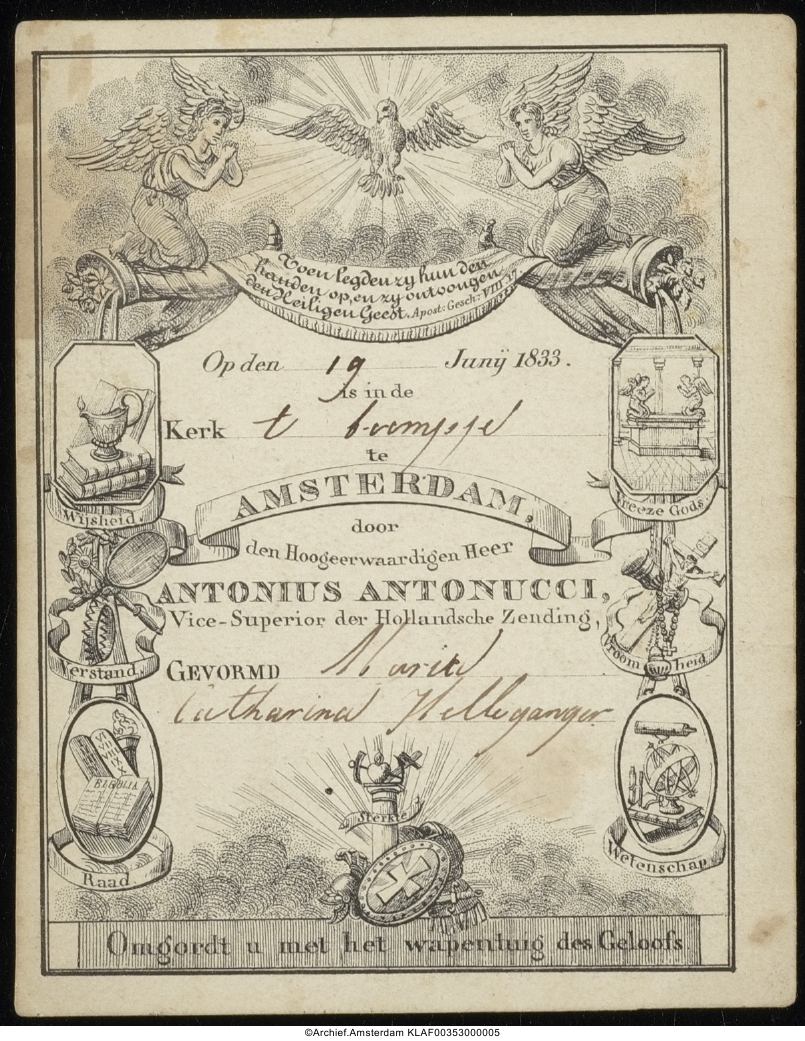 Toen legden zy hun den
handen op, en zy ontvongen
den Heiligen Geest. Apost: Gesch: VIII 17.
Op den 19 Junij 1833.
is in de
Kerk t
te
AMSTERDAM,
door
den Hoogeerwaardigen Heer
ANTONIUS ANTONUCCI,
Vice-Superior der Hollandsche Zending,
GEVORMD Maria
Catharina Helleganger
Wijsheid.
Verstand.
BIBLIA
Raad.
Vreeze Gods.
Vroom heid
Wetenschap.
Sterkte
Omgordt u met het wapentuig des Geloofs.
©Archief.Amsterdam KLAF00353000005